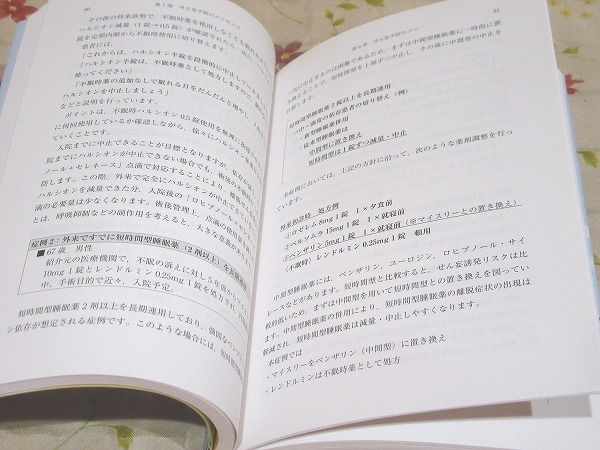 90 第1部 せん妄予防のエッセンス
その後の外来診察で、不眠時薬を使用しなくても眠れる
ハルシオン減量(1錠→0.5錠)が確認されたら、次に
錠を定期内服から不眠時使用に切り替えます。
患者には、
「これからは、ハルシオン半錠を段階的に中止していき
「ハルシオン半錠は、不眠時薬として処方しますので、
使ってください」
「不眠時薬の追加なしで眠れる日をだんだんと増やし、
ルシオンを中止しましょう」
などと説明を行っています。
ポイントは、不眠時ハルシオン0.5錠の使用を無理に
に何回使用しているか確認しながら、徐々にハルシオン
ていくことです。
入院までに中止できることが目標となりますが、依存が
院までにハルシオンが中止できない場合でも、術後の
ノール+セレネース」点滴で対応することによって、
防します。この際、外来で完全にハルシオンが
オンを減量できた分、入院後の「ロヒプノール+
滴の必要量は少なくなります。術後管理上、点滴の使用量
とは、呼吸抑制などの副作用を考えると、大きな意義が
症例2:外来ですでに短時間型睡眠薬(2剤以上)を長期
■67歳 男性
紹介元の医療機関で、不眠の訴えに対し5年前から
10mg 1錠とレンドルミン0.25mg 1錠を処方され、
中。手術目的で近々、入院予定。
短時間型睡眠薬2剤以上を長期連用しており、強固なベン
ン依存が想定される症例です。このような場合には、短時
91
一気に中止するのは困難であるため、まずは中間型に一時的に置
き換えて、短時間型を1剤ずつ中止し、その後に中間型の中止を
目指します。
短時間型睡眠薬2錠以上を長期連用
・新型睡眠薬併用
・従来型睡眠薬は
中間型に置き換え
短時間型は1錠ずつ減量・中止
本症例においては、上記の方針に沿って、次のような薬剤調整を行っ
ています。
外来初診時 処方例
①ロゼレム 8mg 1錠 1×夕食前
②ベルソムラ 15mg 1錠 1×就寝前
③ベンザリン 5mg 1錠 1×就寝前(※マイスリーとの置き換え)
(不眠時)レンドルミン 0.25mg 1錠 頓用
中間型睡眠薬には、ベンザリン、ユーロジン、ロヒプノール・サイ
レースなどがあります。短時間型と比較すると、せん妄誘発リスクは比
較的低いため、まずは中間型を用いて短時間型との置き換えを図ってい
ます。中間型睡眠薬の併用により、短時間型睡眠薬の離脱症状の出現は
軽減され、短時間型睡眠薬は減量・中止しやすくなります。
本症例では
・マイスリーをベンザリン(中間型)に置き換え
・レンドルミンは不眠時薬として処方